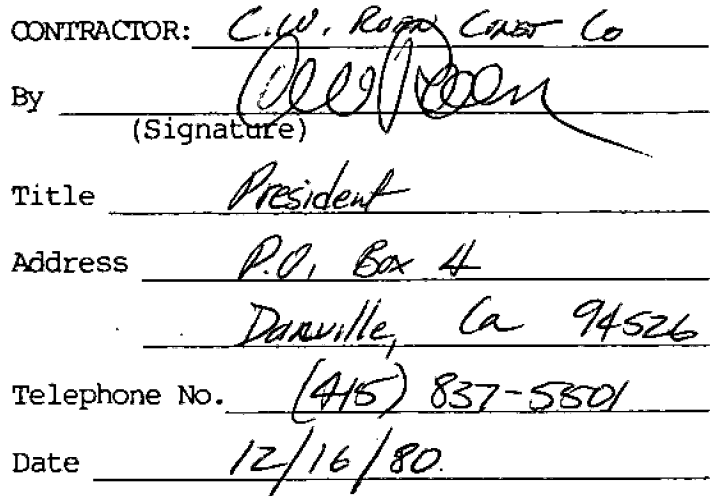 CONTRACTOR: C.W. Roen Const Co
By
(Signature)
Title President
Address P.O. Box 4
Danville, Ca 94526
Telephone No. (415) 837-5501
Date 12/16/80